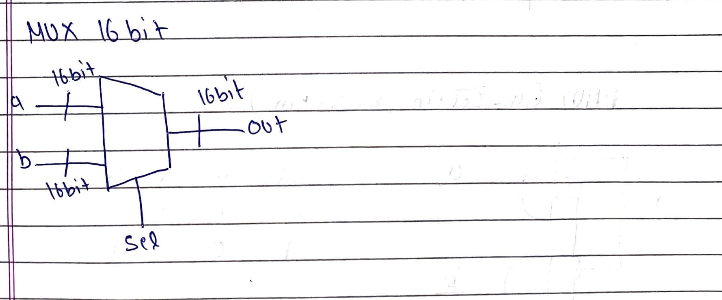 MUX 16 bit
16bit
a
16bit
out
b
16bit
sel